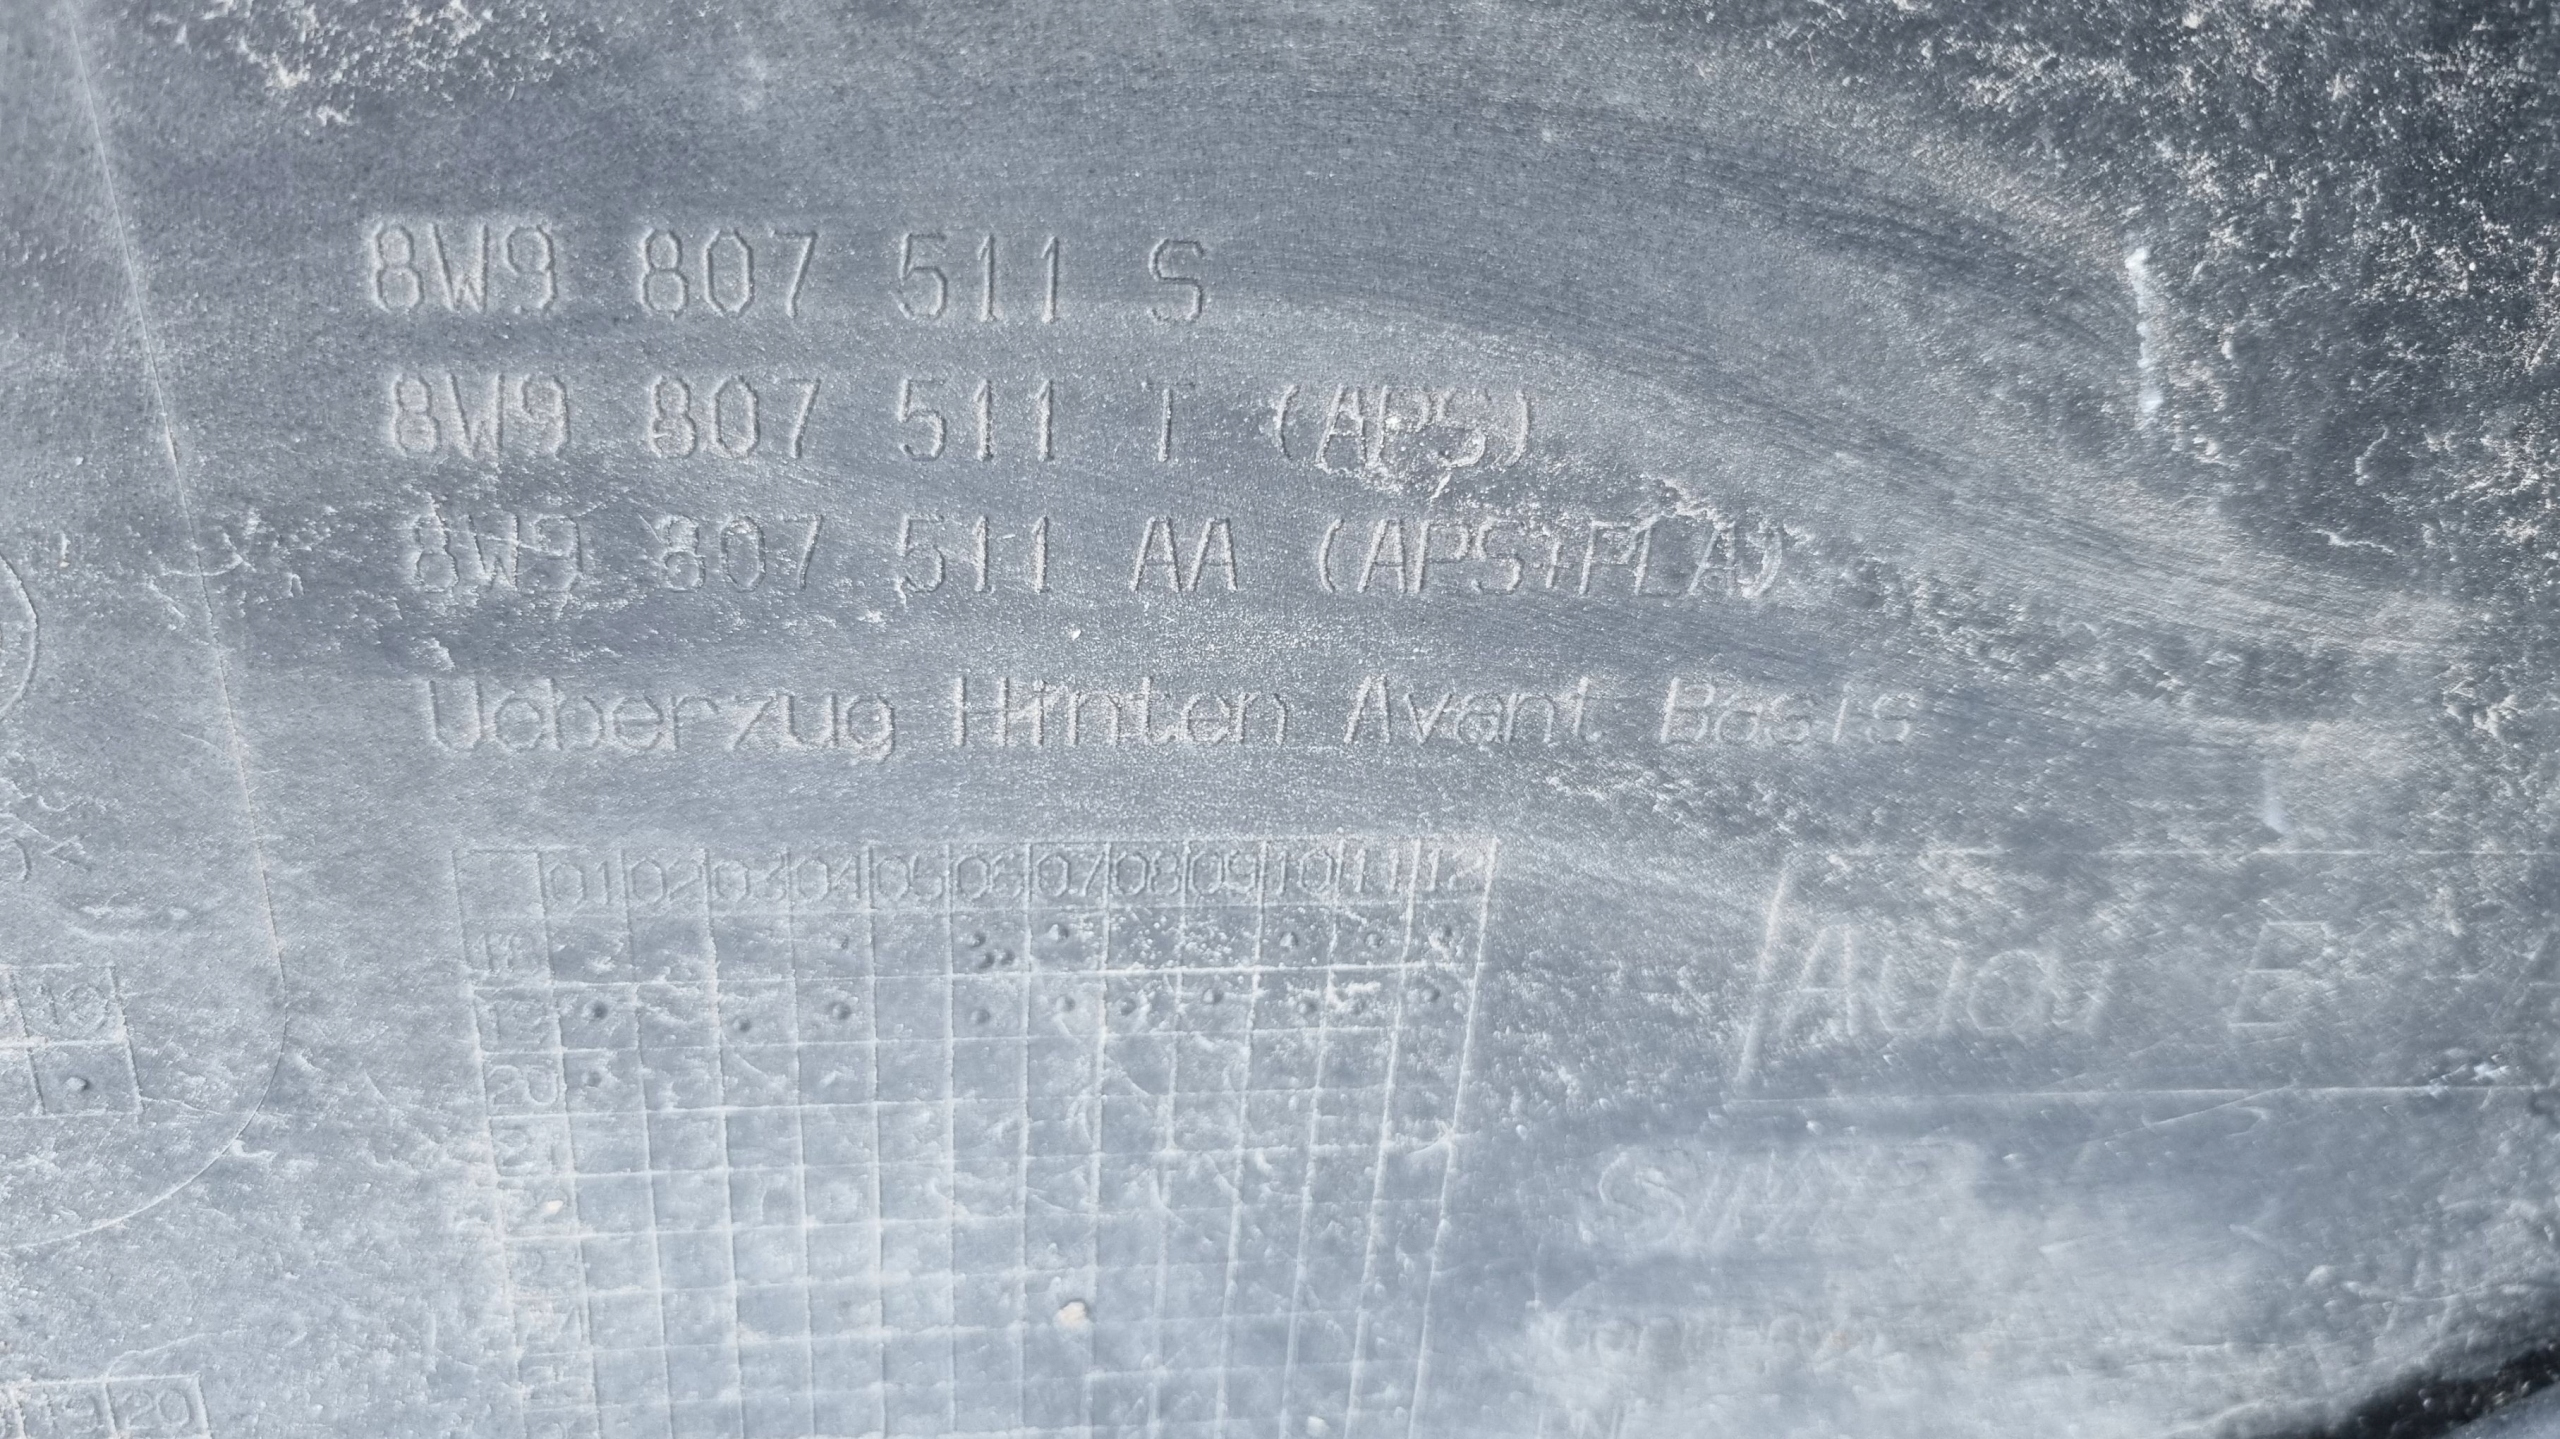 8W9 807 511 S
8W9 807 511 T (APS)
8W9 807 511 AA (APS+PLA)
Ueberzug Hinten Avant Basis
01 02 03 04 05 06 07 08 09 10 11 12
18
19
20
21
Audi
19
19 20